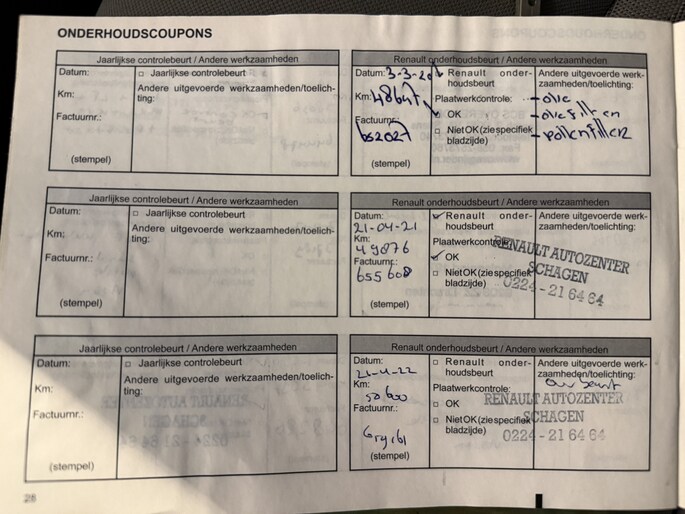 ONDERHOUDSCOUPONS
Jaarlijkse controlebeurt / Andere werkzaamheden
Datum:
□ Jaarlijkse controlebeurt
Km:
Andere uitgevoerde werkzaamheden/toelich-
ting:
Factuurnr.:
(stempel)
Renault onderhoudsbeurt / Andere werkzaamheden
Datum: 3-3-20
Renault onder-
houdsbeurt
Andere uitgevoerde werk-
zaamheden/toelichting:
Km: 48647
Plaatwerkcontrole:
- olie
OK
- oliefilter
Factuurnr.:
Niet OK (zie specifiek
bladzijde)
- pollenfilter
(stempel)
Jaarlijkse controlebeurt / Andere werkzaamheden
Datum:
□ Jaarlijkse controlebeurt
Km:
Andere uitgevoerde werkzaamheden/toelich-
ting:
Factuurnr.:
(stempel)
Renault onderhoudsbeurt / Andere werkzaamheden
Datum:
21-04-21
Renault onder-
houdsbeurt
Andere uitgevoerde werk-
zaamheden/toelichting:
Km:
49876
Plaatwerkcontrole:
OK
Factuurnr.:
655608
Niet OK (zie specifiek
bladzijde)
RENAULT AUTOZENTER
SCHAGEN
0224-21 64 64
(stempel)
Jaarlijkse controlebeurt / Andere werkzaamheden
Datum:
□ Jaarlijkse controlebeurt
Km:
Andere uitgevoerde werkzaamheden/toelich-
ting:
Factuurnr.:
(stempel)
Renault onderhoudsbeurt / Andere werkzaamheden
Datum:
21-4-22
□ Renault onder-
houdsbeurt
Andere uitgevoerde werk-
zaamheden/toelichting:
Km:
Plaatwerkcontrole:
□ OK
Factuurnr.:
□ Niet OK (zie specifiek
bladzijde)
RENAULT AUTOZENTER
SCHAGEN
0224-21 64 64
(stempel)
28